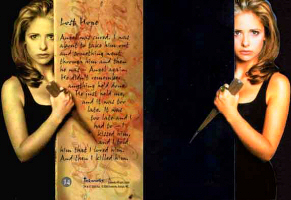 Lost Hope
Angel was cured. I was
about to take him out
and something went
through him and then
he was... Angel again.
He didn't remember
anything he'd done.
He just held me,
and it was too
late. It was
too late and I
had to...
kissed him,
and I told
him that I loved him.
And then I killed him.